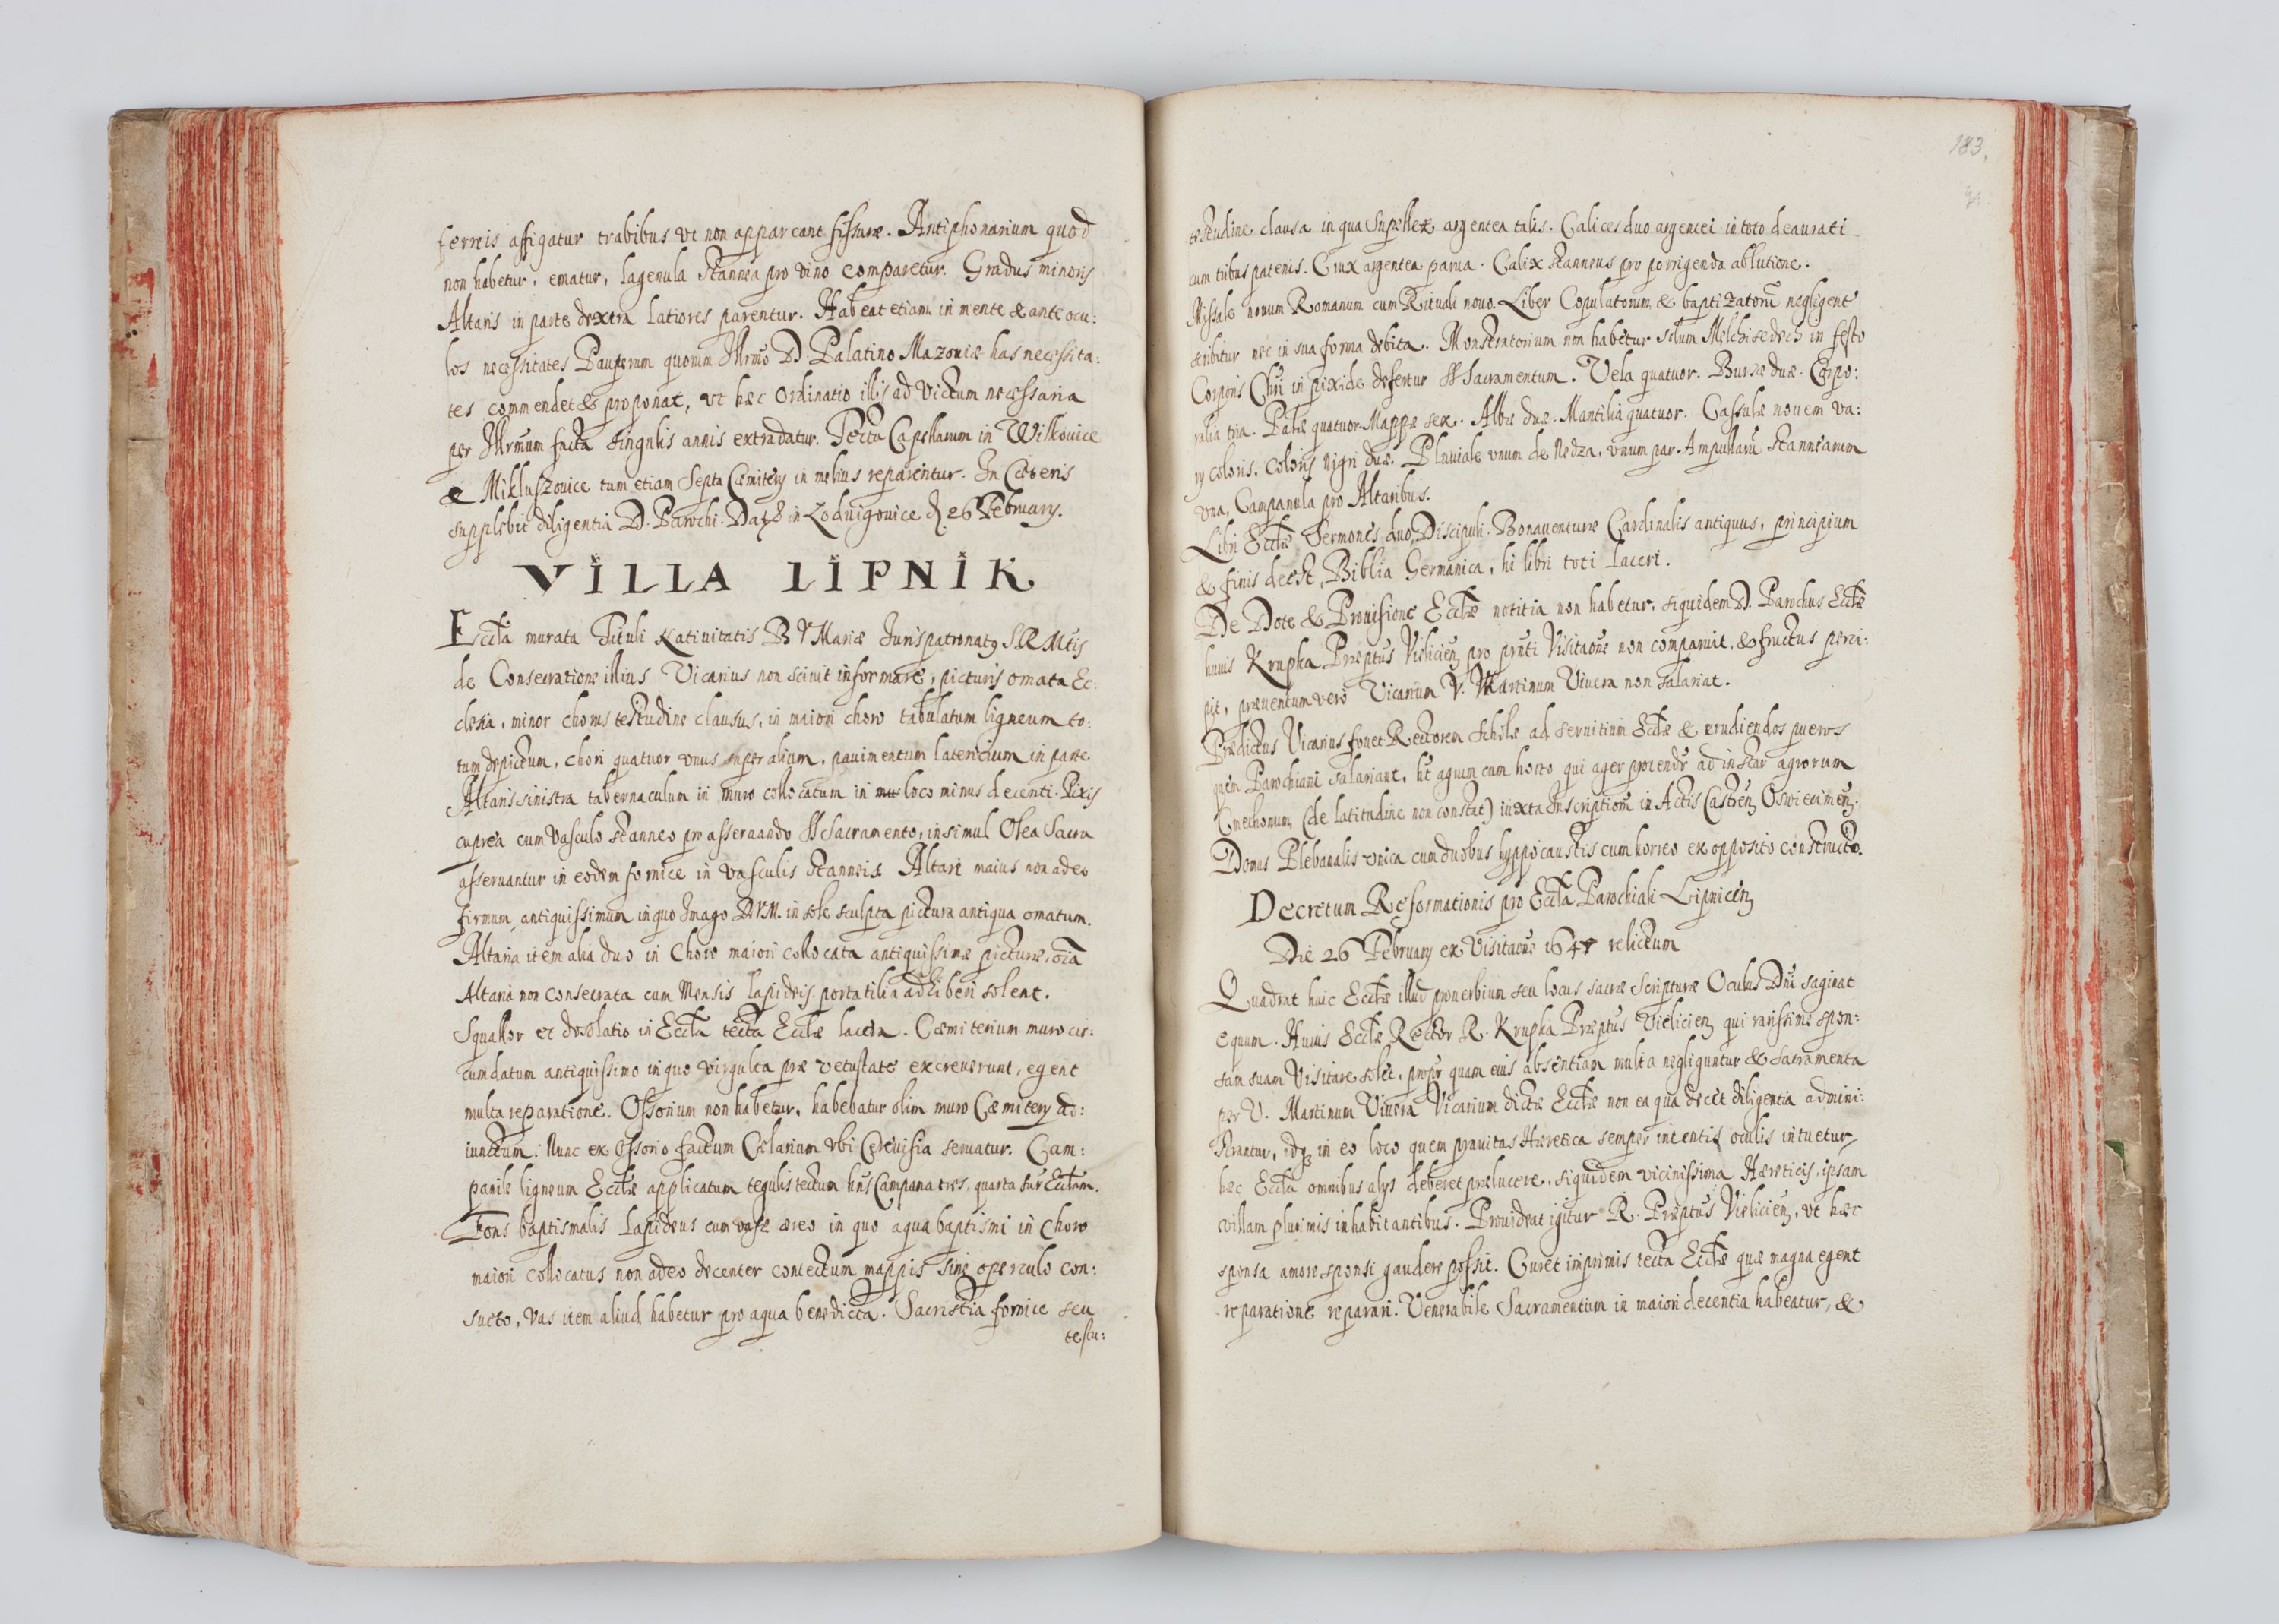 ferreis affigatur trabibus vt non appareant fissurae. Antiphonarium quod
non habetur, ematur, lagenula stannea pro vino comparetur. Gradus minoris
Altaris in parte dextra latiores parentur. Habeat etiam in mente & ante ocu:
los necessitates Pauperum quorum Illrmo D. Palatino Mazoviae has necessita:
tes commendet & proponat, vt haec Ordinatio illis ad victum necessaria
per Illrmum facta singulis annis extradatur. Tecta Capellarum in Wilkouice
& Mikluszouice tum etiam Septa Caemitery in melius reparentur. In Caeteris
supplebit diligentia D. Parochi. Dat in Lodvigovice d. 26 February.
VILLA LIPNIK
Eccla murata Tituli Natiuitatis B V Mariae Jurispatronatq S R Mtis
de Consecratione illius Vicarius non sciuit informare, picturis ornata Ec:
clesia, minor chorus testudine clausus, in maiori choro tabulatum ligneum to:
tum depictum, chori quatuor vnus super alium, pauimentum lateritium in parte
Altaris sinistra tabernaculum in muro collocatum in loco minus decenti. Pixis
cuprea cum vasculo stanneo pro asseruando SS Sacramento, insimul Olea Sacra
asseruantur in eodem fornice in vasculis stanneis. Altare maius non adeo
firmum, antiquissimum in quo Imago B.V.M. in sole sculpta pictura antiqua ornatum.
Altaria item alia duo in Choro maiori collocata antiquissimae picturae, oia
Altaria non consecrata cum Mensis lapideis portatilia adhiberi solent.
Squallor et desolatio in Eccla tecta Ecclae lacera. Caemiterium muro cir:
cumdatum antiquissimo in quo virgulta prae vetustate excreuerunt, egent
multa reparatione. Ossorium non habetur, habebatur olim muro Caemitery ad:
iunctum: Nunc ex Ossorio factum Celarium vbi Ceruisia seruatur. Cam:
panile ligneum Ecclae applicatum tegulis tectum hns Campana tres, quarta supr Ecclam.
Fons baptismalis lapideus cum vase aereo in quo aqua baptismi in Choro
maiori collocatus non adeo decenter contectum mappis sine operculo con:
sueto, vas item aliud habetur pro aqua benedicta. Sacristia fornice seu
testu:
183,
testudine clausa in qua Supellex argentea talis. Calices duo argentei in toto deaurati
cum tribus patenis. Crux argentea parua. Calix stanneus pro porrigenda ablutione.
Missale nouum Romanum cum Rituali nouo. Liber Copulatorum & baptizatorũ negligentr
scribitur nec in sua forma debita. Monstratorium non habetur solum Melchisedech in festo
Corporis Chri in pixide defertur SS Sacramentum. Vela quatuor. Bursae duae. Corpo:
ralia tria. Palae quatuor. Mappae sex. Albae duae. Mantilia quatuor. Cassulae nouem va:
ry coloris, coloris nigri duae. Pluuiale vnum de Nedza, vnum par. Ampullarũ stannearum
vna, Campanula pro Altaribus.
Libri Ecclae Sermones duo Discipuli. Bonauenturae Cardinalis antiquus, principium
& finis deest, Biblia Germanica, hi libri toti laceri.
De Dote & Prouisione Ecclae notitia non habetur, siquidem D. Parochus Ecclae
huius Krupka Praeptus Vieliciens pro pnti Visitaone non comparuit, & fructus perci:
pit, prouentum vero Vicarium V. Martinum Viuera non salariat.
Praedictus Vicarius fouet Rectorem scholae ad seruitium Ecclae & erudiendos pueros
quem Parochiani salariant, ht agrum cum horto qui ager protendr ad instar agrorum
Cmethonum (de latitudine non constat) iuxta Inscriptionẽ in Actis Castrens Oswiecimens.
Domus Plebanalis vnica cum duobus hyppocaustis cum horreo ex opposito constructo.
Decretum Reformationis pro Eccla Parochiali Lipnicens
Die 26 February ex Visitatne 1647 relictum
Quadrat huic Ecclae illud prouerbium seu locus sacrae Scripturae Oculus Dni saginat
equum. Huius Ecclae Rector R. Krupka Praeptus Vieliciens qui rarissime spon:
sam suam Visitare solet, propr quam eius absentiam multa negliguntur & Sacramenta
per V. Martinum Viuera Vicarium dictae Ecclae non ea qua decet diligentia admini:
strantur, idq in eo loco quem prauitas Haeretica semper intentis oculis intuetur,
haec Eccla omnibus alys deberet praelucere, siquidem vicinissima Haereticis, ipsam
villam plurimis inhabitantibus. Prouideat igitur R. Praeptus Vieliciens, vt haec
sponsa amore sponsi gaudere possit. Curet imprimis tecta Ecclae quae magna egent
reparatione reparari. Venerabile Sacramentum in maiori decentia habeatur, &